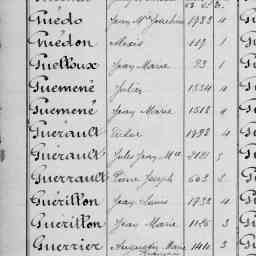 Guédo Jean Mie Joachim 1932 4
Guédon Alexis 119 1
Guelloux Jean Marie 93 1
Guemené Julien 1524 4
Guemené Jean Marie 1518 4
Guérault Victor 1792 4
Guérault Jules Jean Mie 2121 5
Guerrault Pierre Joseph 602 2
Guérillon Jean Louis 1732 4
Guérillon Jean Marie 1125 3
Guerrier Augustin Marie 1410 3